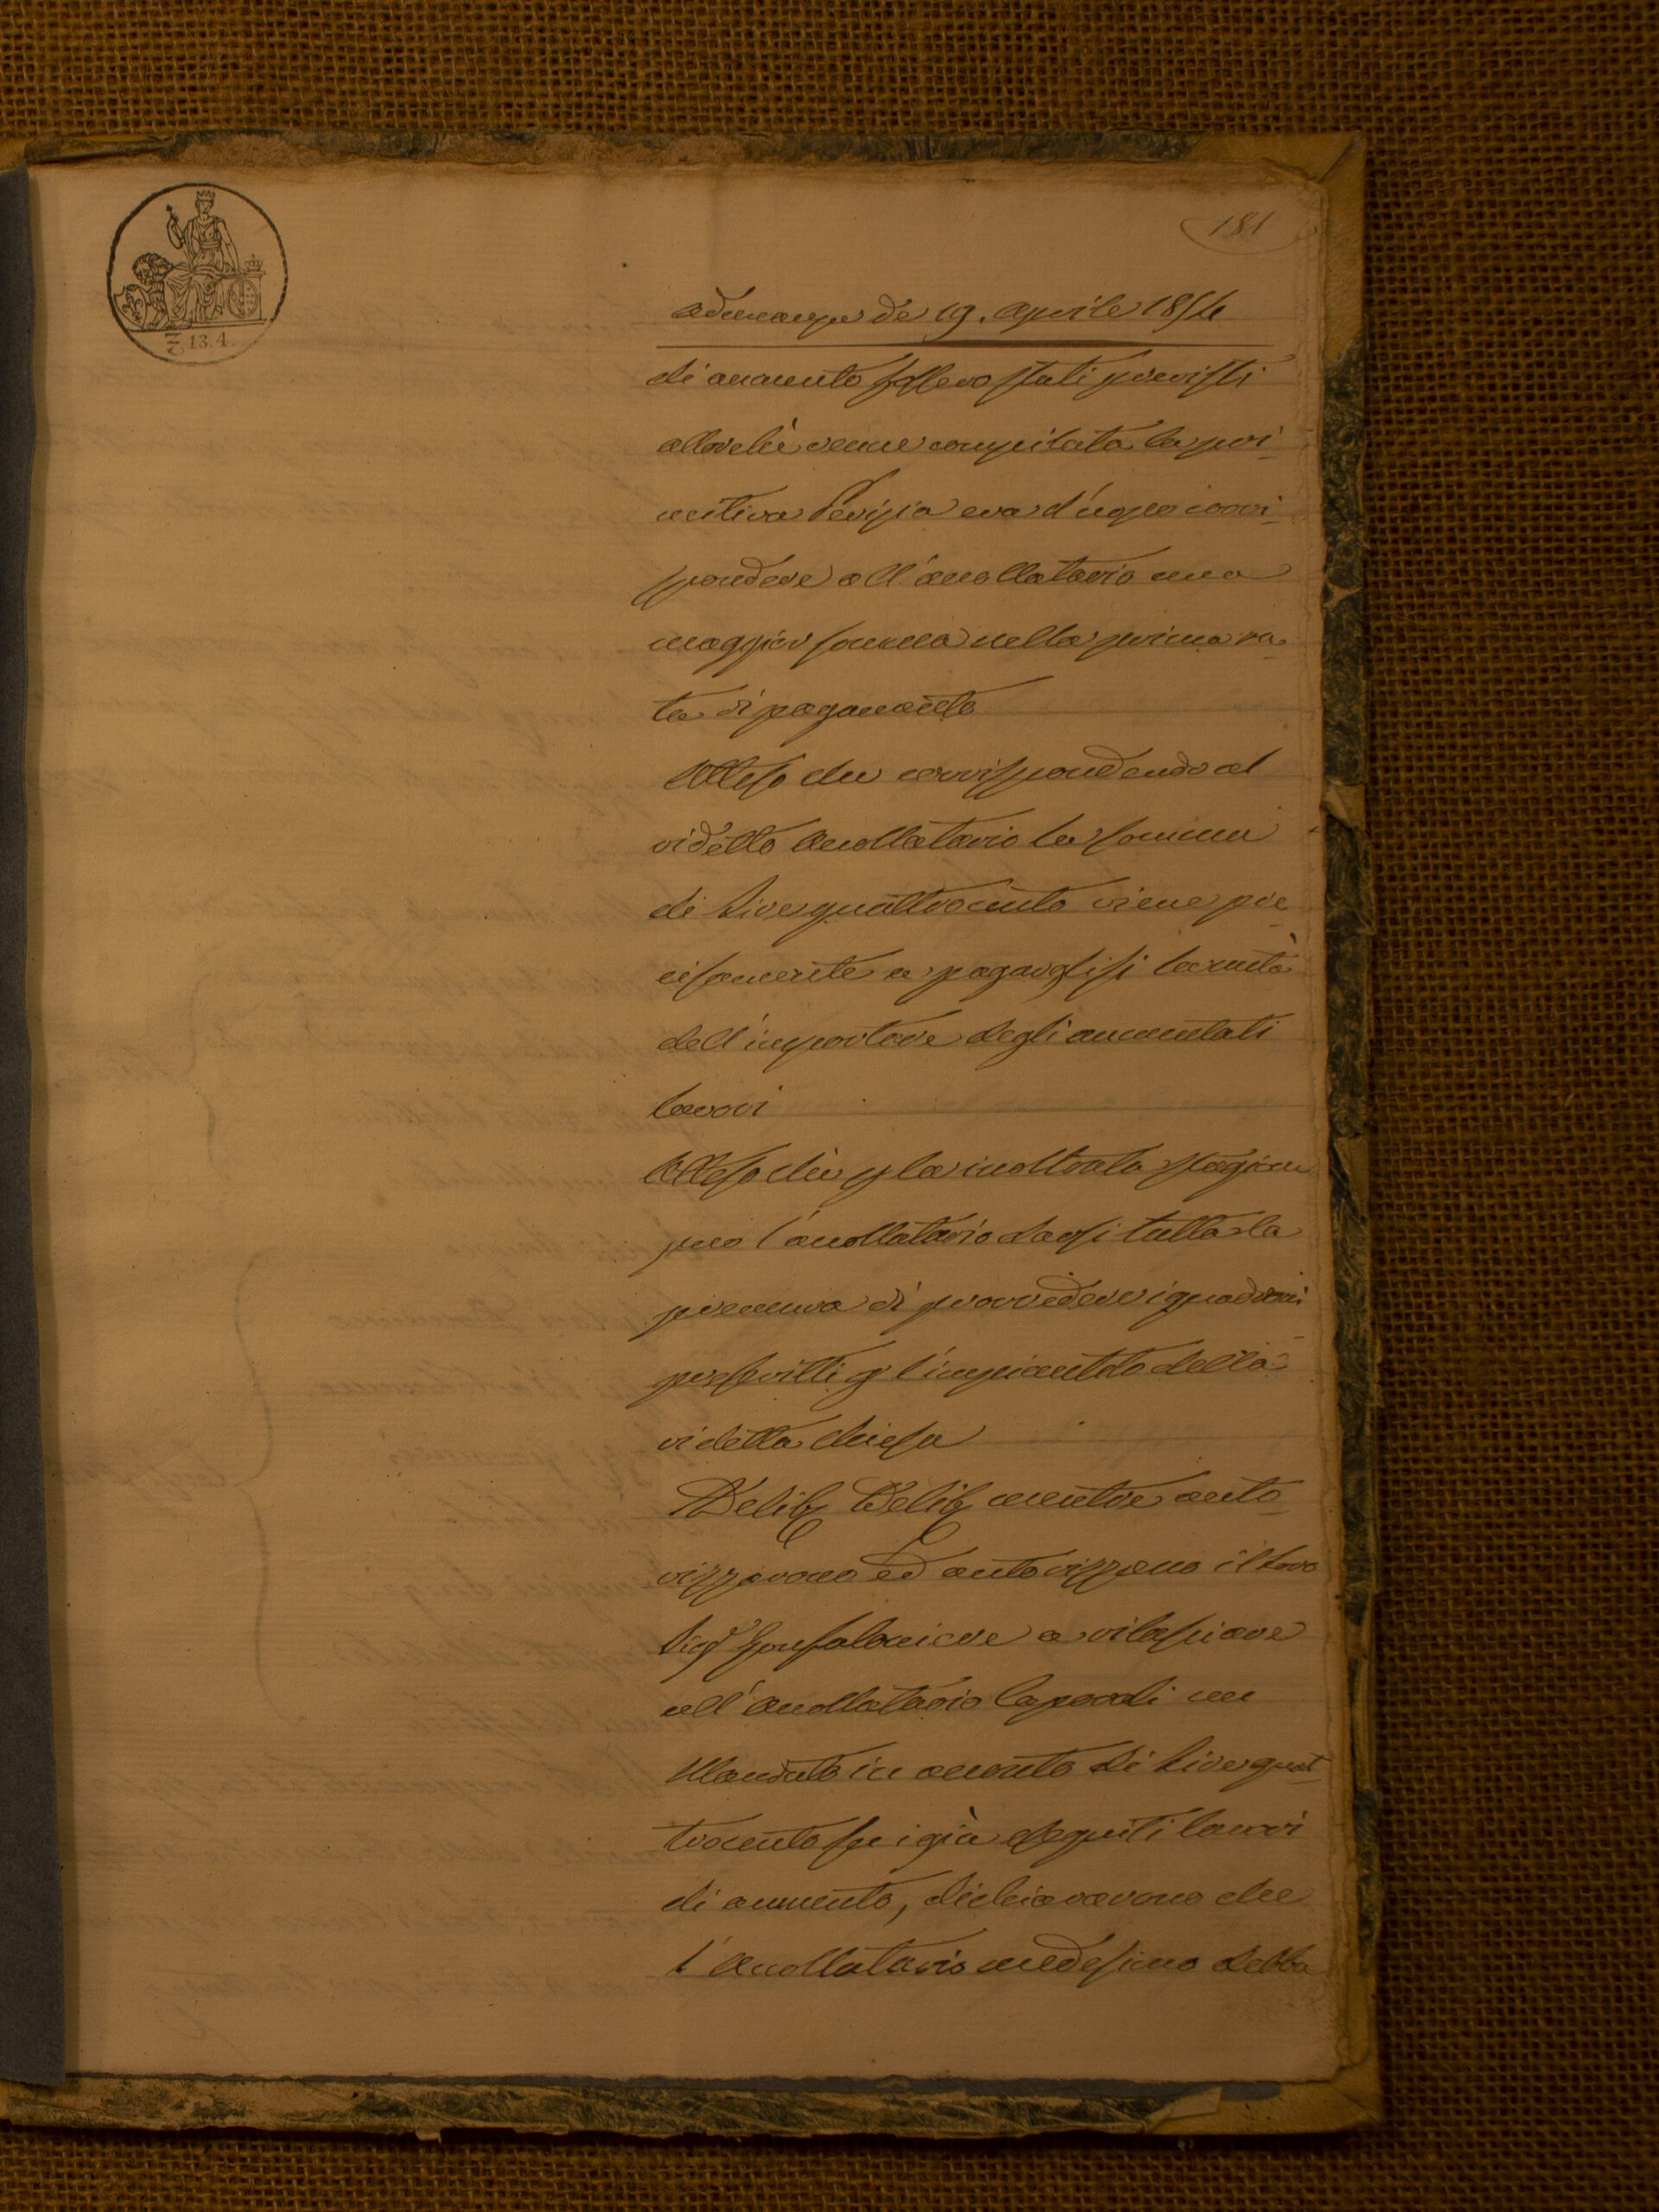 181
13.4.
adunanza de 19. Aprile 1854
di aumento fossero stati previsti
allorchè venne compilata la pri_
mitiva Perizia era d'uopo corri_
spondere all'accollatario una
maggior somma nella prima ra_
ta di pagamento
Atteso che corrispondendo al
ridetto Accollatario la somma
di Lire quattrocento viene pre_
cisamente a pagarglisi la metà
dell'importare degli aumentati
lavori
Atteso che p la inoltrata stagione
può l'accollatario darsi tutta la
premura di provvedere i quadroni
prescritti p l'impiantito della
ridetta Chiesa
Delib Delib mentre auto_
rizzarono ed autorizzano il loro
Sigr Gonfaloniere a rilasciare
all'Accollatario Lapardi un
Mandato in acconto di Lire quat_
trocento su i già eseguiti lavori
di aumento, dichiararono che
l'Accollatario medesimo debba